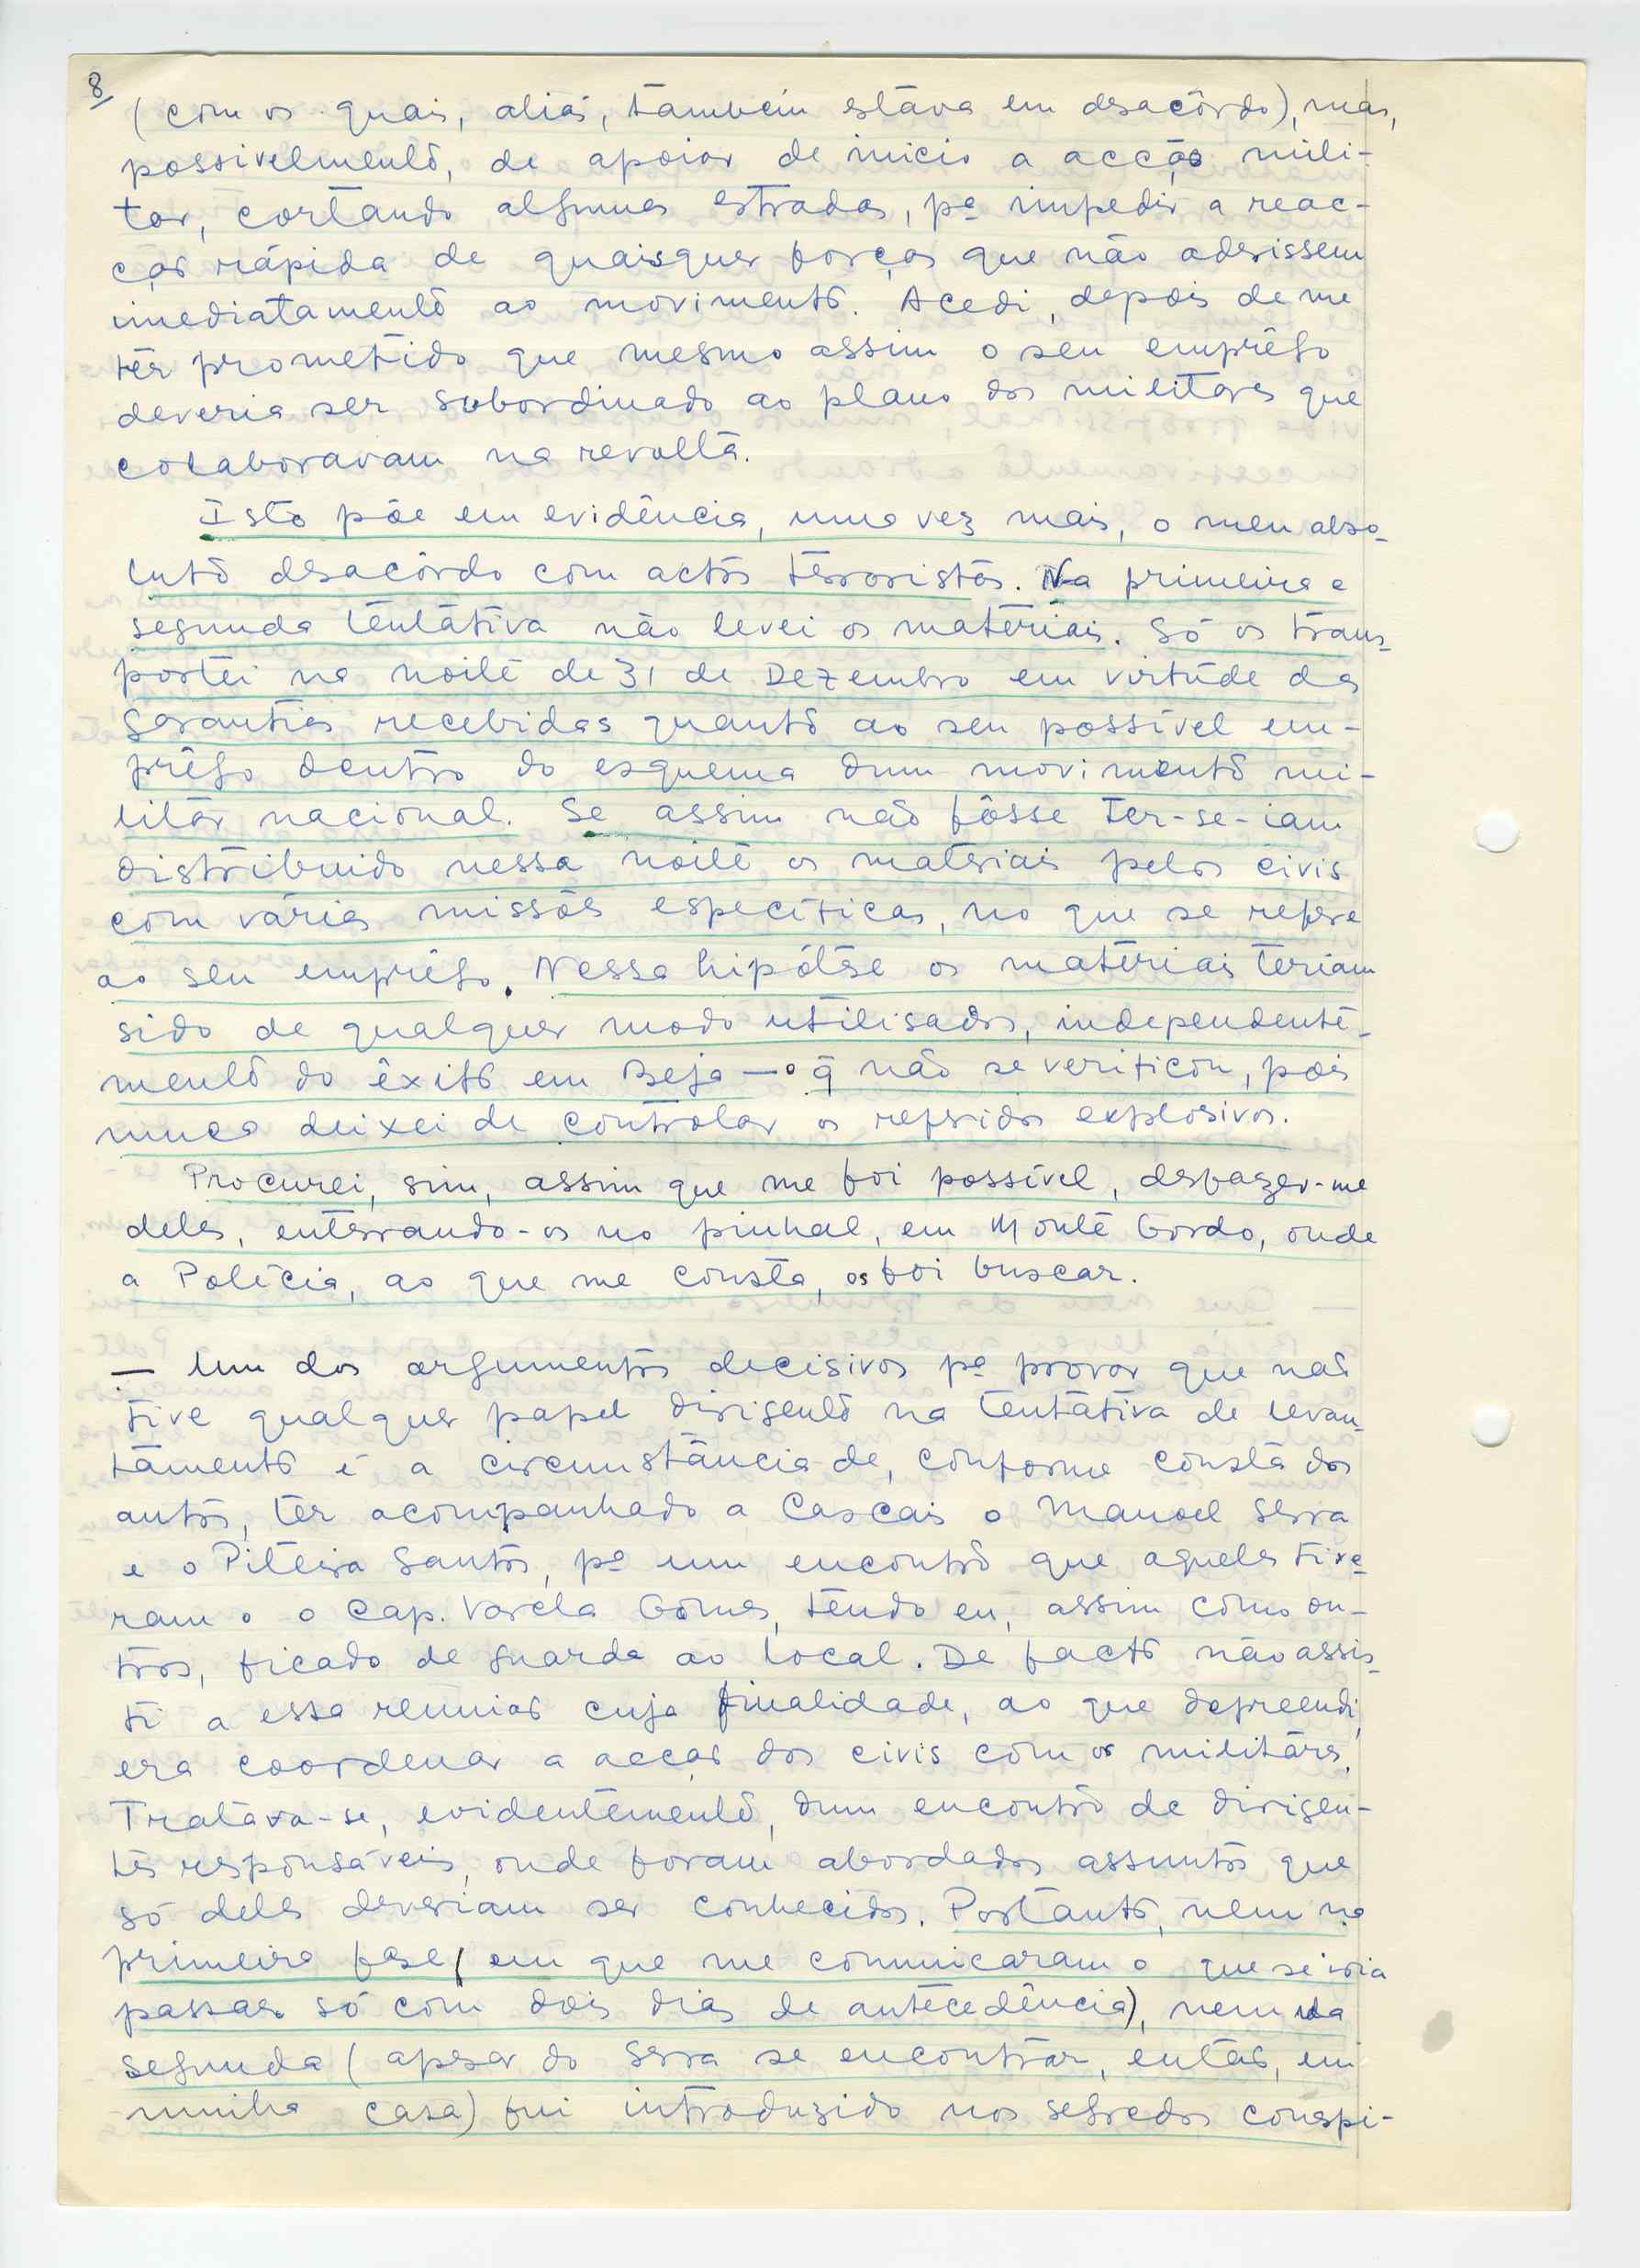 8
(com os quais, aliás, também estava em desacôrdo), mas,
possivelmente, de apoiar de inicio a acção mili-
tar, cortando algumas estradas, pª impedir a reac-
ção rápida de quaisquer forças que não aderissem
imediatamente ao movimento. Acedi, depois de me
ter prometido que mesmo assim o seu emprêgo
deveria ser subordinado ao plano dos militares que
colaboravam na revolta.
Isto põe em evidência, uma vez mais, o meu abso-
luto desacôrdo com actos terroristas. Na primeira e
segunda tentativa não levei os materiais. Só os trans-
portei na noite de 31 de Dezembro em virtude das
garantias recebidas quanto ao seu possível em-
prêgo dentro do esquema dum movimento mi-
litar nacional. Se assim não fôsse ter-se-iam
distribuido nessa noite os materiais pelos civis
com várias missões específicas, no que se refere
ao seu emprêgo. Nessa hipótese os materiais teriam
sido de qualquer modo utilisados, independente-
mente do êxito em Beja — o q̃ não se verificou, pois
nunca deixei de controlar os referidos explosivos.
Procurei, sim, assim que me foi possível, desfazer-me
deles, enterrando-os no pinhal, em Monte Gordo, onde
a Polícia, ao que me consta, os foi buscar.
— Um dos argumentos decisivos pª provar que não
tive qualquer papel dirigente na tentativa de levan-
tamento é a circunstância de, conforme consta dos
autos, ter acompanhado a Cascais o Manoel Serra
e o Piteira Santos, pª um encontro que aqueles tive
ram c o Cap. Varela Gomes, tendo eu, assim como ou-
tros, ficado de guarda ao local. De facto não assis-
ti a essa reunião cuja finalidade, ao que depreendi,
era coordenar a acção dos civis com os militares.
Tratava-se, evidentemente, dum encontro de dirigen-
tes responsáveis, onde foram abordados assuntos que
só deles deveriam ser conhecidos. Portanto, nem na
primeira fase (em que me comunicaram o que se iria
passar só com dois dias de antecedência), nem na
segunda (apesar do Serra se encontrar, então, em
minha casa) fui introduzido nos segredos conspi-